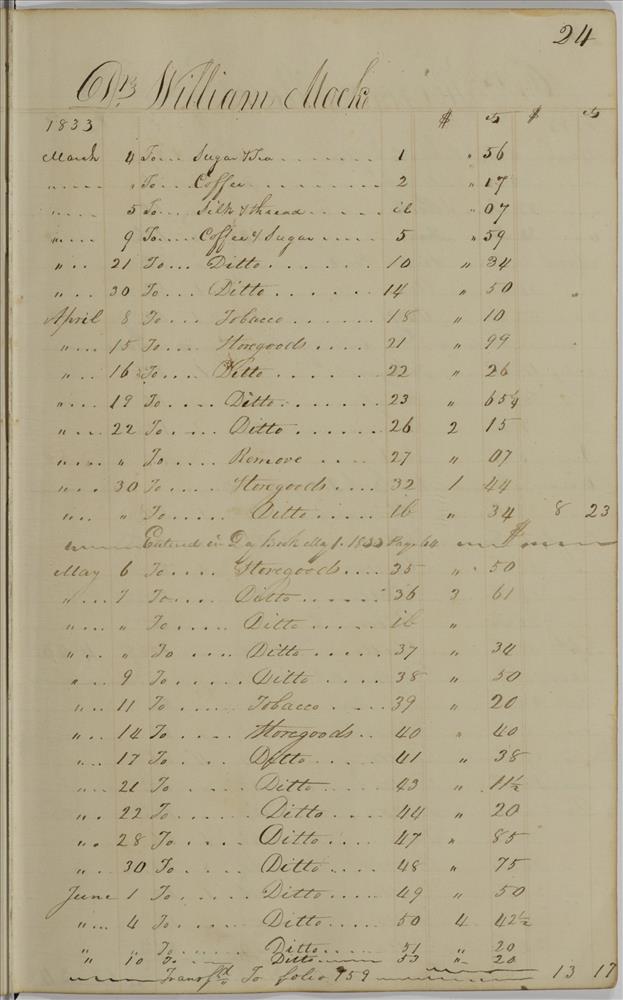 24
Dr. William Mack
1833 $ cts $ cts
March 4 To... Sugar & Tea ........ 1 " 56
" .... " To... Coffee .......... 2 " 17
" .... 5 To... Silk & thread ..... ib " 07
" .... 9 To.... Coffee & Sugar ..... 5 " 59
" .. 21 To... Ditto ...... 10 " 34
" .. 30 To... Ditto ...... 14 " 50
April 8 To... Tobacco ...... 18 " 10
" ... 15 To.... Storegoods .... 21 " 99
" .. 16 To.... Ditto ...... 22 " 26
" ... 19 To.... Ditto ...... 23 " 65¼
" .. 22 To.... Ditto ...... 26 2 15
" ... " To.... Remove .... 27 " 07
" .. 30 To.... Storegoods .... 32 1 44
" .. " To.... Ditto .... ib " 34 8 23
Entered in Day Book May 1. 1833 Page 64 $
May 6 To.... Storegoods .... 35 " 50
" ... 7 To.... Ditto ...... 36 3 61
" ... " To.... Ditto ..... ib "
" .. " To.... Ditto ..... 37 " 34
" ... 9 To..... Ditto ..... 38 " 50
" .. 11 To..... Tobacco .... 39 " 20
" .. 14 To..... Storegoods .. 40 " 40
" ... 17 To.... Ditto .... 41 " 38
" ... 21 To.... Ditto .... 43 " 11½
" . 22 To..... Ditto .... 44 " 20
" . 28 To.... Ditto .... 47 " 85
" . 30 To.... Ditto .... 48 " 75
June 1 To..... Ditto .... 49 " 50
" ... 4 To..... Ditto .... 50 4 42½
" " To..... Ditto ..... 51 " 20
" 10 To..... Ditto ..... 53 " 20
Transfd To folio 159 13 17